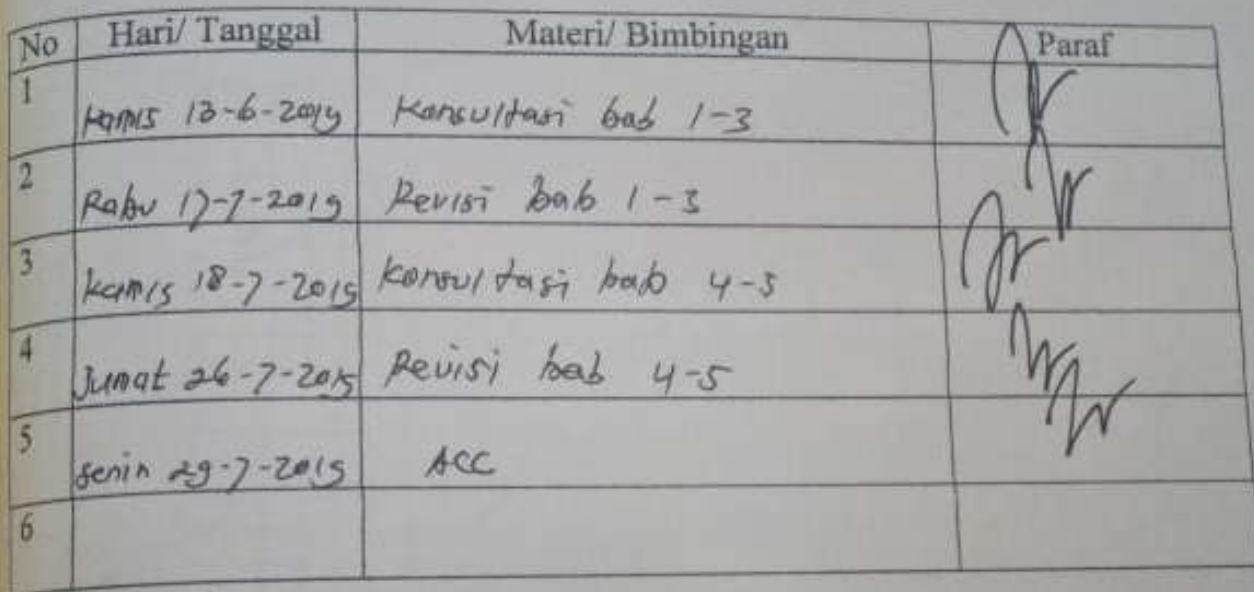 No Hari/ Tanggal Materi/ Bimbingan Paraf
1 Kamis 13-6-2019 Konsultasi bab 1-3
2 Rabu 17-7-2019 Revisi bab 1-3
3 Kamis 18-7-2019 Konsultasi bab 4-5
4 Jumat 26-7-2019 Revisi bab 4-5
5 Senin 29-7-2019 ACC
6